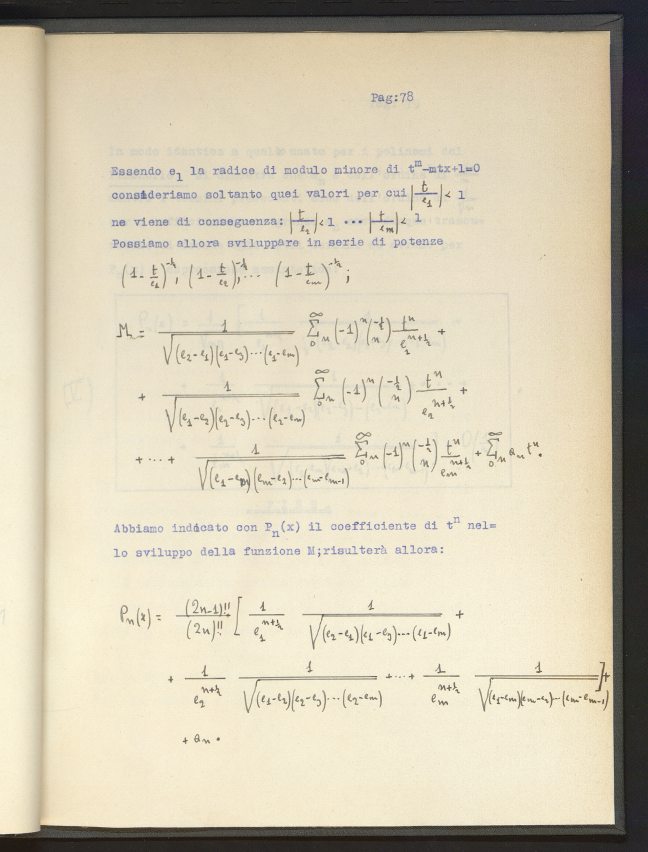 Pag:78
Essendo e₁ la radice di modulo minore di tᵐ-mtx+1=0
consideriamo soltanto quei valori per cui |t/e₁| < 1
ne viene di conseguenza: |t/e₂| < 1 ... |t/eₘ| < 1
Possiamo allora sviluppare in serie di potenze
(1 - t/e₁)^(-1/2), (1 - t/e₂)^(-1/2), ... (1 - t/eₘ)^(-1/2);
M = 1/√((e₂-e₁)(e₁-e₃)...(e₁-eₘ)) ∑₀^∞ n (-1)ⁿ (-1/2 n) tⁿ/e₁^(n+1/2) +
+ 1/√((e₁-e₂)(e₂-e₃)...(e₂-eₘ)) ∑₀^∞ n (-1)ⁿ (-1/2 n) tⁿ/e₂^(n+1/2) +
+ ... + 1/√((e₁-eₘ)(eₘ-e₂)...(eₘ-eₘ₋₁)) ∑₀^∞ n (-1)ⁿ (-1/2 n) tⁿ/eₘ^(n+1/2) + ∑₀^∞ n aₙ tⁿ.
Abbiamo indicato con Pₙ(x) il coefficiente di tⁿ nel=
lo sviluppo della funzione M;risulterà allora:
Pₙ(x) = (2n-1)!!/(2n)!! [ 1/e₁^(n+1/2) 1/√((e₂-e₁)(e₁-e₃)...(e₁-eₘ)) +
+ 1/e₂^(n+1/2) 1/√((e₁-e₂)(e₂-e₃)...(e₂-eₘ)) + ... + 1/eₘ^(n+1/2) 1/√((e₁-eₘ)(eₘ-e₂)...(eₘ-eₘ₋₁)) ] +
+ aₙ.